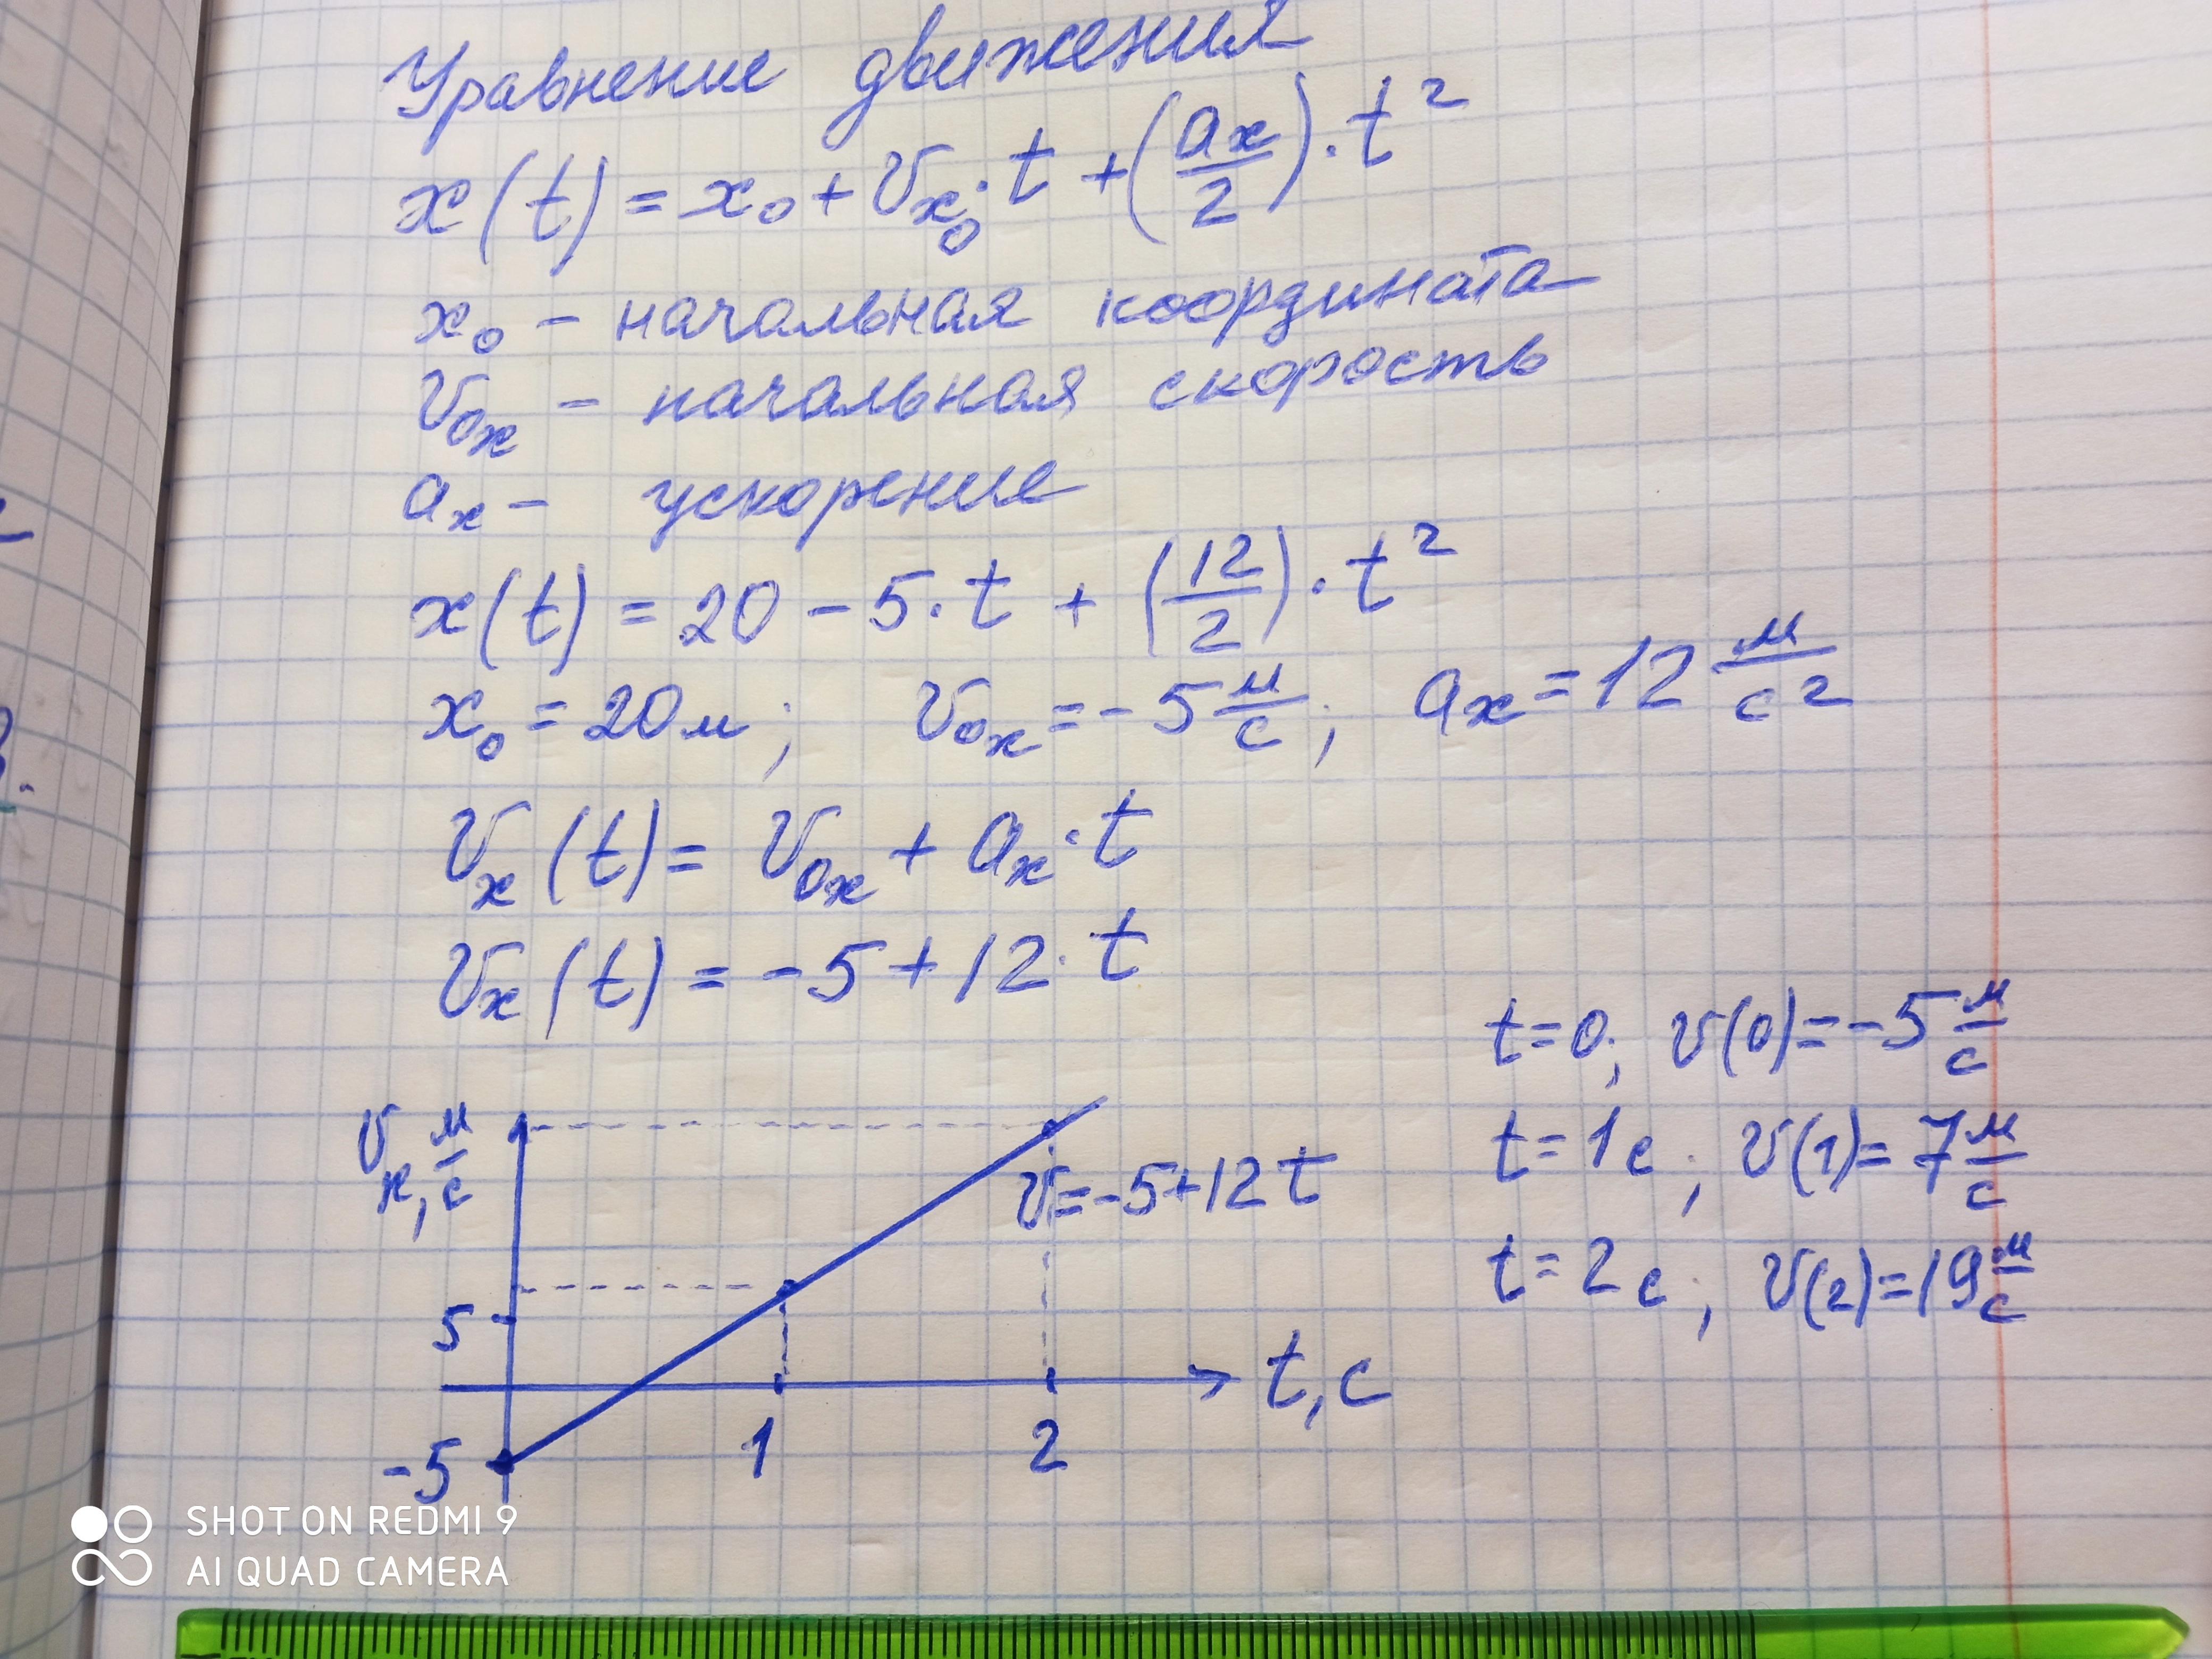 Уравнение движения
x(t) = x₀ + Vx₀·t + (aх/2)·t²
x₀ – начальная координата
V₀х – начальная скорость
aх – ускорение
x(t) = 20 – 5·t + (12/2)·t²
x₀ = 20м; V₀х = –5 м/с; aх = 12 м/с²
Vх(t) = V₀х + aх·t
Vх(t) = –5 + 12·t
t=0; V(0)=–5 м/с
t=1с; V(1)=7 м/с
t=2с; V(2)=19 м/с
Vх, м/с
V=–5+12t
5
t,c
–5
1
2
SHOT ON REDMI 9
AI QUAD CAMERA